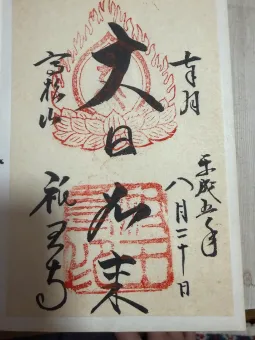 奉拝
平成五年
八月二十日
大日如来
高松山
祇王寺